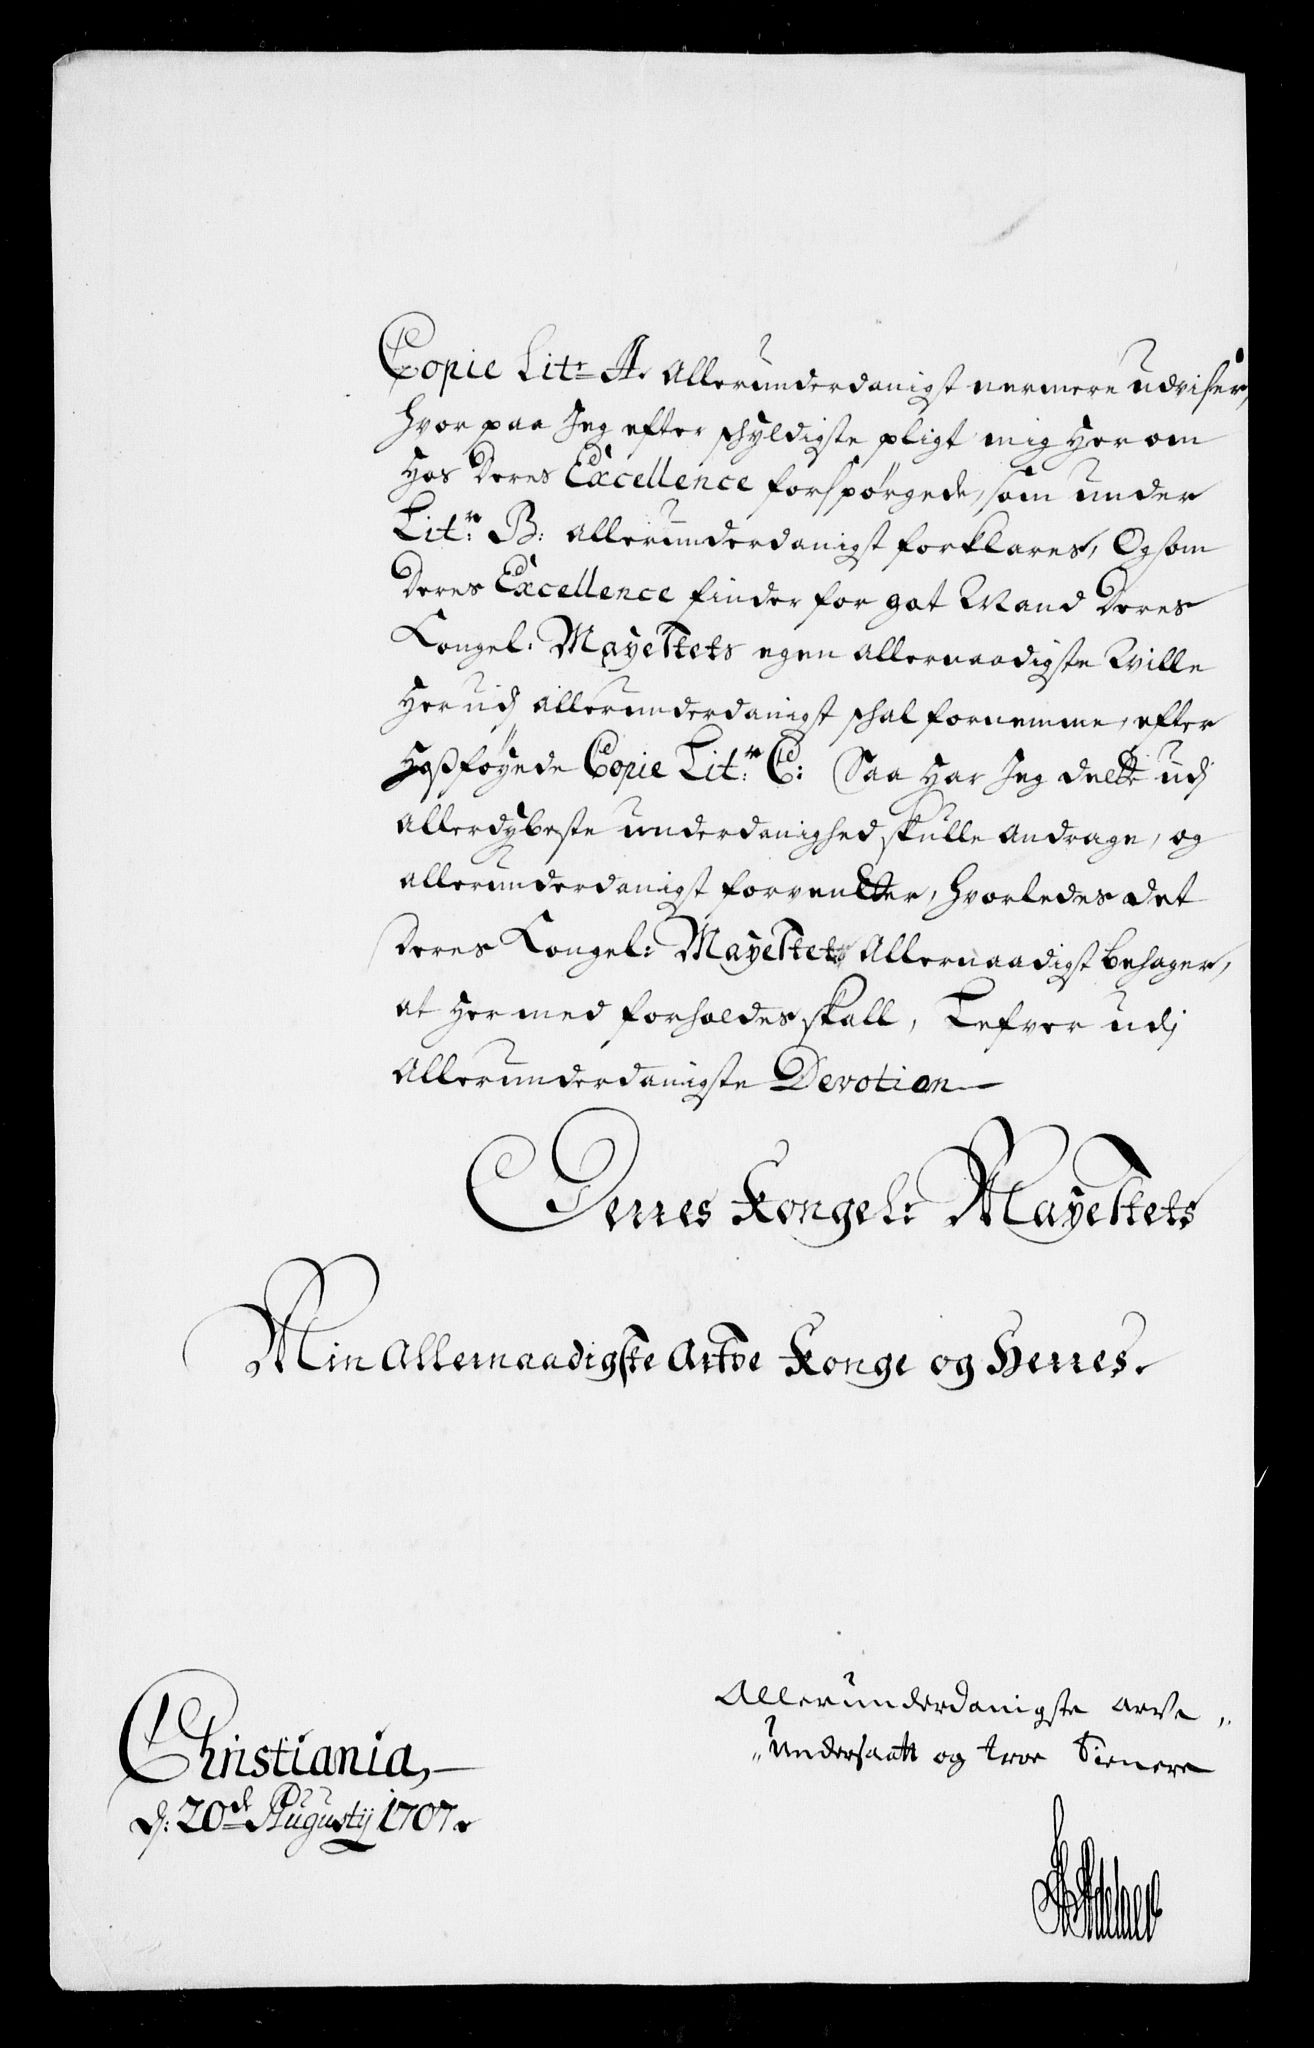 Copie Litr A. Allerunderdanigst nermere udviser,
hvor paa Jeg efter schyldigste pligt mig her om
hos Deres Excellence forspørgede, som under
Litr: B: allerunderdanigst forklares, Og som
Deres Excellence finder for got Deres
Kongel: Mayestets egen allernaadigste Wille
her udj allerunderdanigst schal fornemme, efter
hosføyede Copie Litr: C: Saa har Jeg dette udj
allerdybeste underdanighed skulle andrage, og
allerunderdanigst forventter, hvorledes det
Deres Kongel: Mayestets Allernaadigst behager,
at her med forholdes skall, Lefver udj
Allerunderdanigste Devotion
Derres Kongel: Mayestets
Min Allernaadigste Arfve Konge og Herres.
Allerunderdanigste arve,,
,,undersaatt og troe Tienere
Christiania,
d: 20de Augustij 1707.